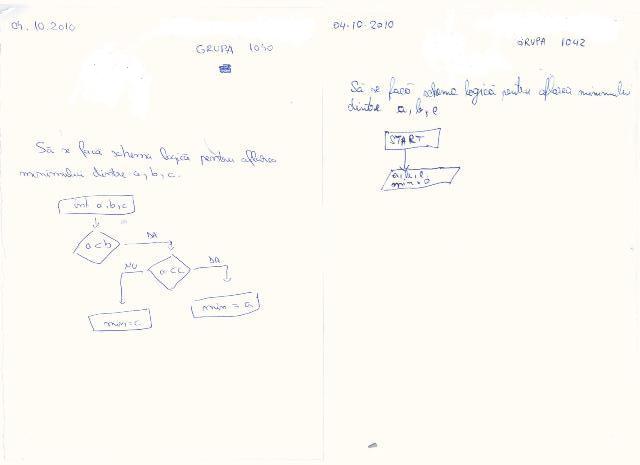 04.10.2010
GRUPA 1030
Să se facă schema logică pentru aflarea
minimului dintre a, b, c.
int a,b,c
a<b
DA
a<c
NU
DA
min=c
min = a
04-10-2010
GRUPA 1042
Să se facă schema logică pentru aflarea minimului
dintre a, b, c
START
a, b, c
min = 0